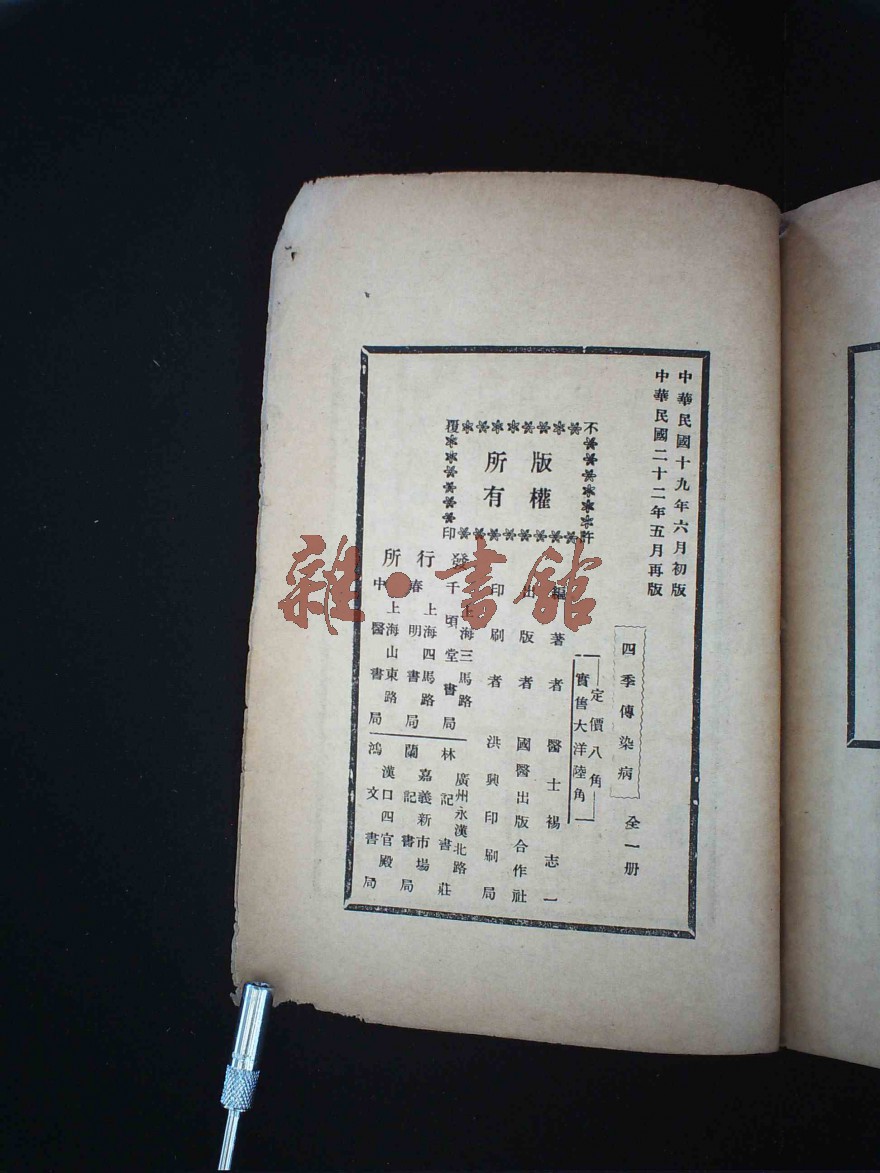 中華民國十九年六月初版
中華民國二十二年五月再版
四季傳染病 全一册
定價八角
實售大洋陸角
不許覆印
版權
所有
編著者 醫士楊志一
出版者 國醫出版合作社
印刷者 洪興印刷局
發行所
上海三馬路
千頃堂書局
上海四馬路
春明書局
上海山東路
中醫書局
廣州永漢北路
林記書莊
嘉義新市場
蘭記書局
漢口四官殿
鴻文書局
雜·書館